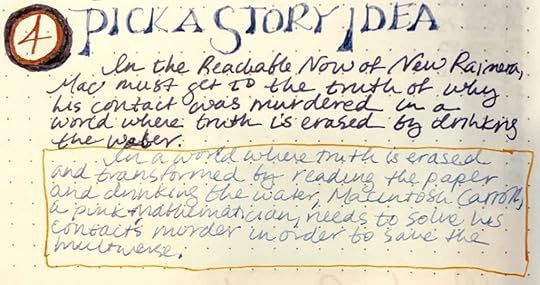 4 PICK A STORY IDEA
In the Reachable Now of New Raimera,
Mac must get to the truth of why
his contact was murdered in a
world where truth is erased by drinking
the water.
In a world where truth is erased
and transformed by reading the paper
and drinking the water, Macintosh Carroll,
a punk mathematician, needs to solve his
contact's murder in order to save the
multiverse.